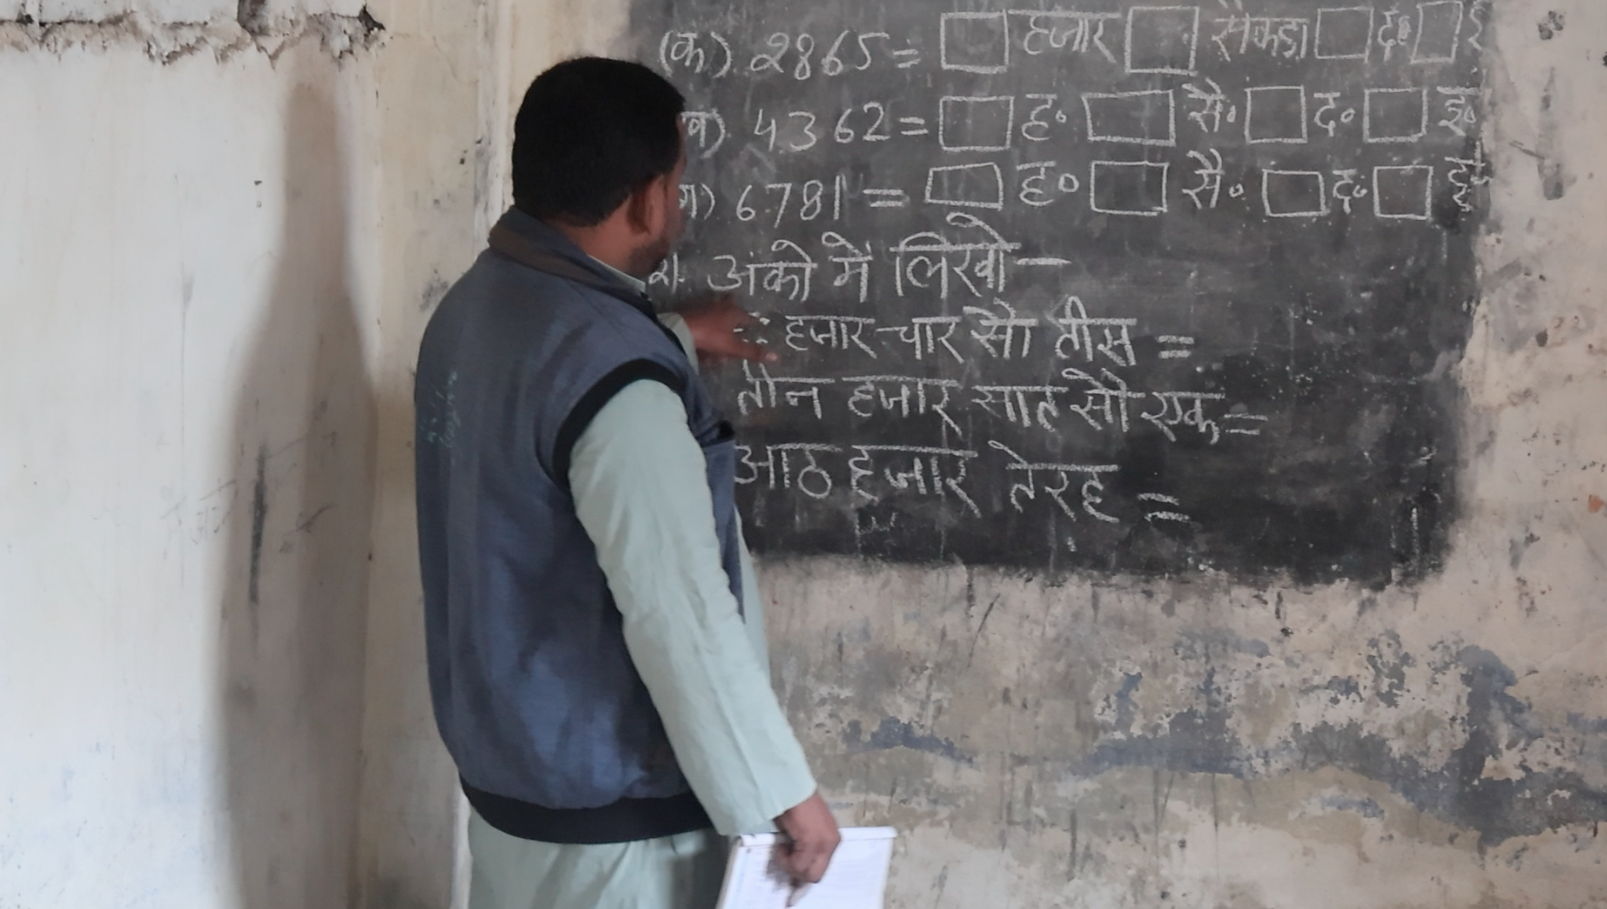 (क) 2865 = □ हजार □ सैकडा □ द॰ □ इ
4362 = □ ह॰ □ सै॰ □ द॰ □ इ॰
6781 = □ ह॰ □ सै॰ □ द॰ □ इ॰
अंको में लिखो —
हजार चार सौ तीस =
तीन हजार सात सौ एक =
आठ हजार तेरह =